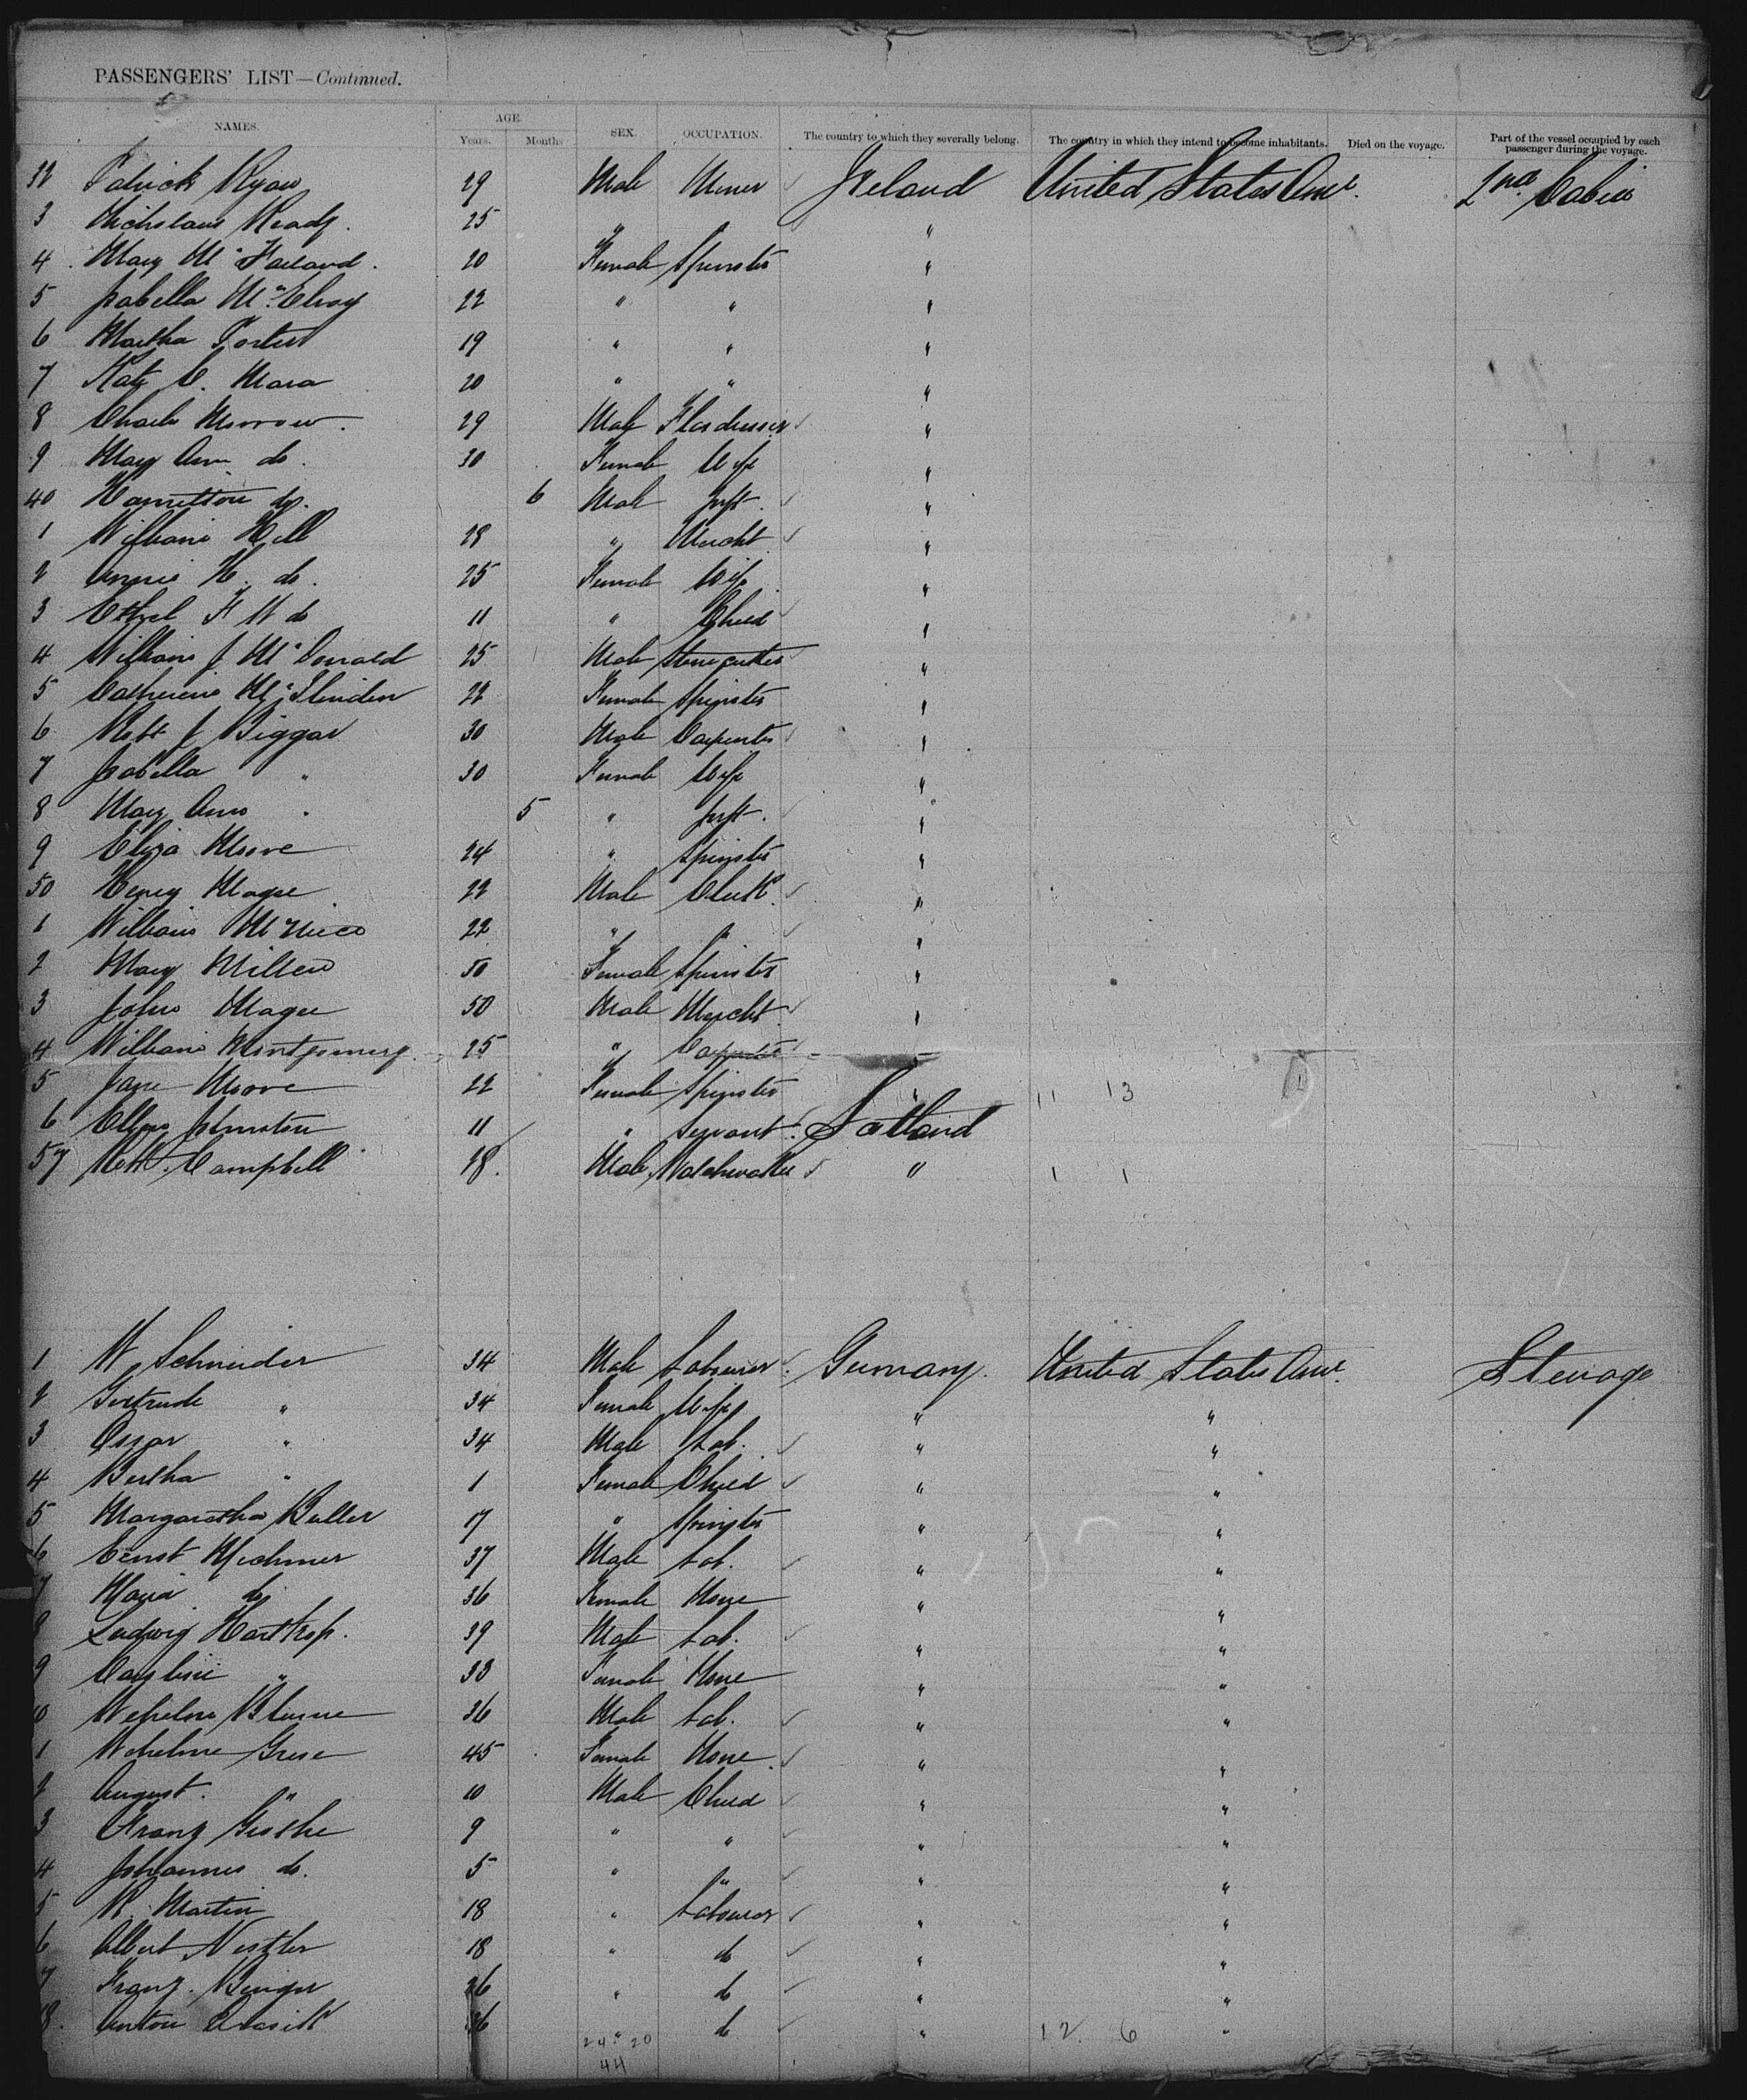 PASSENGERS' LIST—Continued.
NAMES. AGE. Years. Months SEX. OCCUPATION. The country to which they severally belong. The country in which they intend to become inhabitants. Died on the voyage. Part of the vessel occupied by each passenger during the voyage.
32 Patrick Ryan 29 Male Miner Ireland United States Amr. 2nd Cabin
3 Ready 25 " " "
4 Mary Mc Farland 20 Female Spinster "
5 Isabella McElroy 22 " " "
6 Martha Porter 19 " " "
7 Kate O. Mara 20 " " "
8 Charles Morrow 29 Male Flaxdresser "
9 Mary Ann do. 30 Female Wife "
40 Hamilton do. 6 Male Inft. "
1 William Hill 28 " Mercht "
2 Annie H. do. 25 Female Wife "
3 Ethel F W do 11 " Child "
4 William J McDonald 25 Male Stonecutter "
5 Catherine 22 Female Spinster "
6 Robt J Biggar 30 Male Carpenter "
7 Isabella " 30 Female Wife "
8 Mary Ann " 5 " Inft. "
9 Eliza Moore 24 " Spinster "
50 Henry Magee 22 Male Clerk "
1 William 22 " " "
2 Mary Millen 50 Female Spinster "
3 John Magee 50 Male Mercht "
4 William Montgomery 25 " Carpenter "
5 Jane Moore 22 Female Spinster " 11 13
6 Ellen Johnston 11 " Servant Scotland
57 Robt. Campbell 18. Male Watchmaker " 1 1
1 W Schneider 34 Male Labourer Germany. United States Amr. Steerage
2 Gertrude " 34 Female Wife " "
3 Oscar " 34 Male Lab. " "
4 Bertha " 1 Female Child " "
5 Margaretha Buller 17 " Spinster " "
6 Ernst 37 Male Lab. " "
7 Maria do 36 Female None " "
8 Ludwig 39 Male Lab. " "
9 Caroline " 33 Female None " "
10 Blume 36 Male Lab. " "
1 Grese 45 Female None " "
2 August. " 10 Male Child " "
3 Franz 9 " " " "
4 Johannes do. 5 " " " "
5 Martin 18 " Labourer " "
6 Albert Nestler 18 " do " "
7 Franz 26 " do " "
18. Anton 36 " do " 12. 6 "
24 20
44